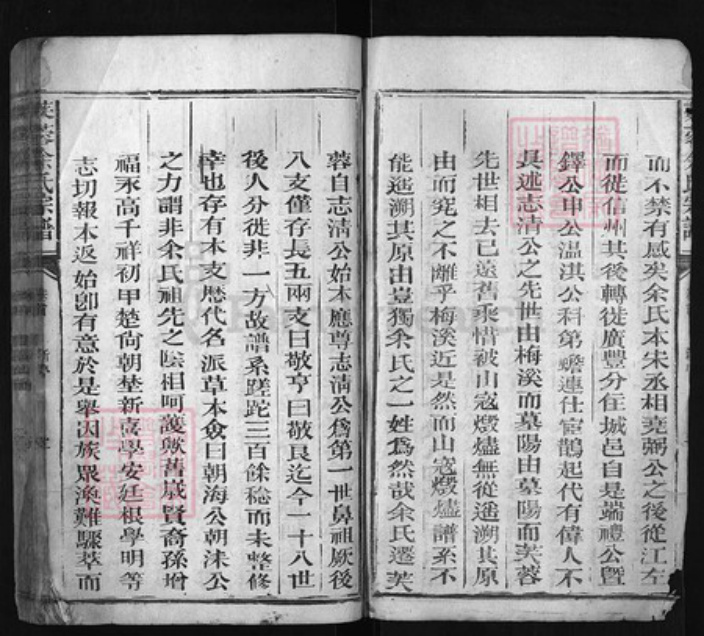 而不禁有感矣余氏本宋丞相堯弼公之後從江左
而從信州其後轉徙廣豐分隹城邑自是端禮公暨
鐸公申公温淇公科第蟾連仕宦鵲起代有偉人不
具述志清公之先世由梅溪而墓陽由墓陽而芙蓉
先世相去已遠舊乘惜被山寇燬燼無從遡溯其原
由而究之不離乎梅溪近是然而山寇燬燼譜系不
能遡溯其原由豈獨余氏之一姓爲然哉余氏遷芙
蓉自志清公始本應尊志清公爲第一世鼻祖厥後
八支僅存長五兩支曰敬亨曰敬良迄今一十八世
後人分徙非一方故譜系蹉跎三百餘稔而未整修
幸也存有本支歷代名派草本僉曰朝海公朝洙公
之力謂非余氏祖先之陰相呵護歟舊歲賢裔孫增
福永高千祥初甲楚尙朝埜新喜學安廷根學明等
志切報本返始卽有意於是舉因族眾渙難驟萃而
芙蓉余氏宗譜